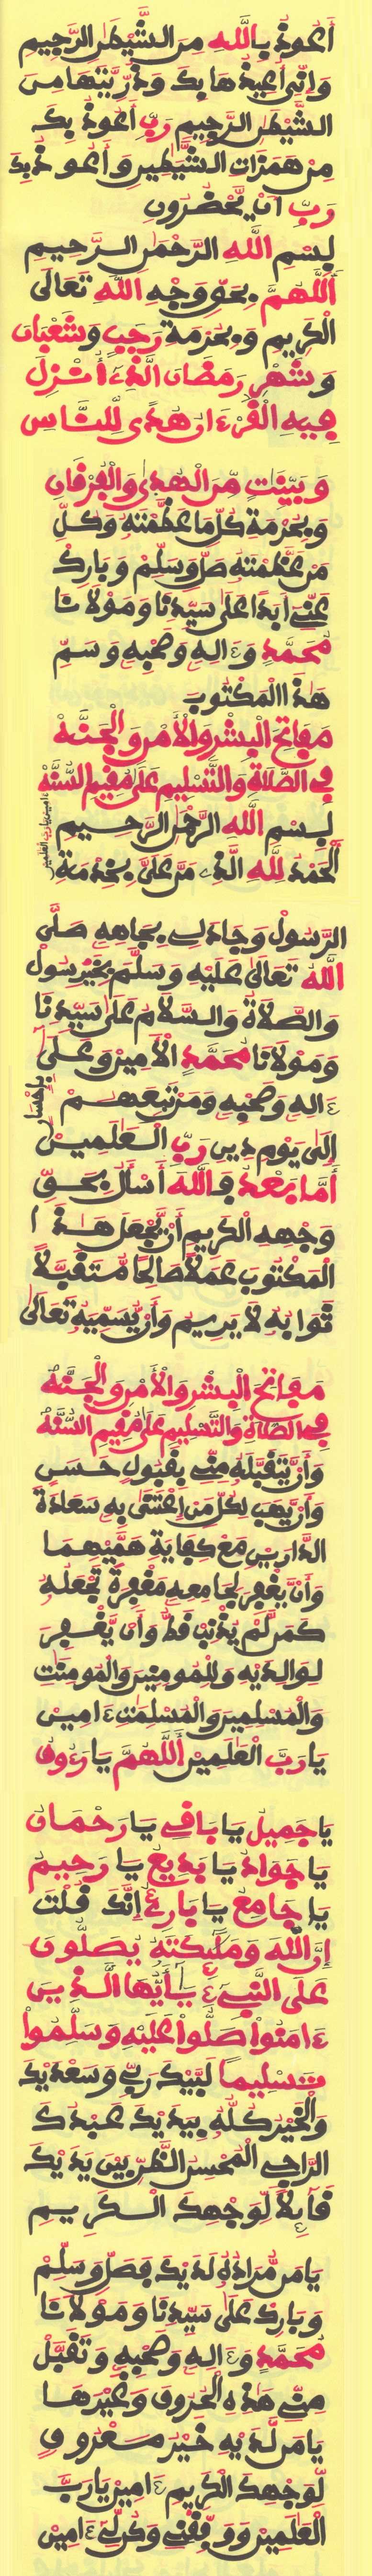 أعوذ بالله من الشيطن الرجيم
وإني أعيذها بك وذريتها من
الشيطن الرجيم رب أعوذ بك
من همزات الشيطين وأعوذ بك
رب أن يحضرون
بسم الله الرحمن الرحيم
اللهم بحق وجه الله تعالى
الكريم وبحرمة رجب وشعبان
وشهر رمضان الذي أنزل
فيه القرءان هدى للناس
وبينت من الهدى والفرقان
وبحرمة كل ما عظمته وكل
من عظمته صل وسلم وبارك
عني أبدا على سيدنا ومولانا
محمد وءاله وصحبه وسم
هذا المكتوب
مفاتح البشر والأمن والجنه
في الصلاة والتسليم على مقيم السنه
ءامين يارب العلمين
بسم الله الرحمن الرحيم
الحمد لله الذي من علي بخدمة
الرسول وجاد لي بجاهه صلى
الله تعالى عليه وسلم بخير سول
والصلاة والسلام على سيدنا
ومولانا محمد الأمين وعلى
ءاله وصحبه ومن تبعهم
بإحسان
إلى يوم دين رب العلمين
أما بعد فالله أسأل بحق
وجهه الكريم أن يجعل هذا
المكتوب عملا صالحا متقبلا
ثوابه لا يريم وأن يسميه تعالى
مفاتح البشر والأمن والجنه
في الصلاة والتسليم على مقيم السنه
وأن يتقبله مني بقبول حسن
وأن يهب لكل من اعتنى به سعادة
الدارين مع كفاية هميهما
وأن يغفر لجامعه مغفرة تجعله
كمن لم يذنب قط وأن يغفر
لوالديه وللمومنين والمومنت
والمسلمين والمسلمت ءامين
يا رب العلمين اللهم يا رءوف
يا جميل يا باقي يا رحمان
يا جواد يا بديع يا رحيم
يا جامع يا بارئ إنك قلت
إن الله وملئكته يصلون
على النبي يأيها الذين
ءامنوا صلوا عليه وسلموا
تسليما لبيك ربي وسعديك
والخير كله بيديك عبدك
الراجي المحسن الظن بين يديك
قائلا لوجهك الكريم
يا من مراده لديك فصل وسلم
وبارك على سيدنا ومولانا
محمد وءاله وصحبه وتقبل
مني هذه الحروف وغيرها
يا من لديه خير معروف
لوجهك الكريم ءامين يا رب
العلمين ووفقني وكن لي ءامين